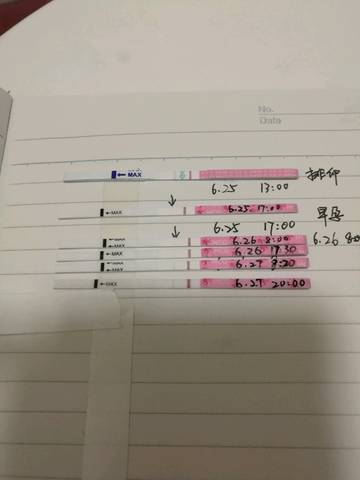 No.
Data
← MAX
排卵
6.25 13:00
←MAX 6.25 17:00
早孕
6.25 17:00
←MAX 6.26 8:00
6.26 8:00
←MAX 6.26 17:30
←MAX 6.27 8:20
←MAX 6.27 20:00